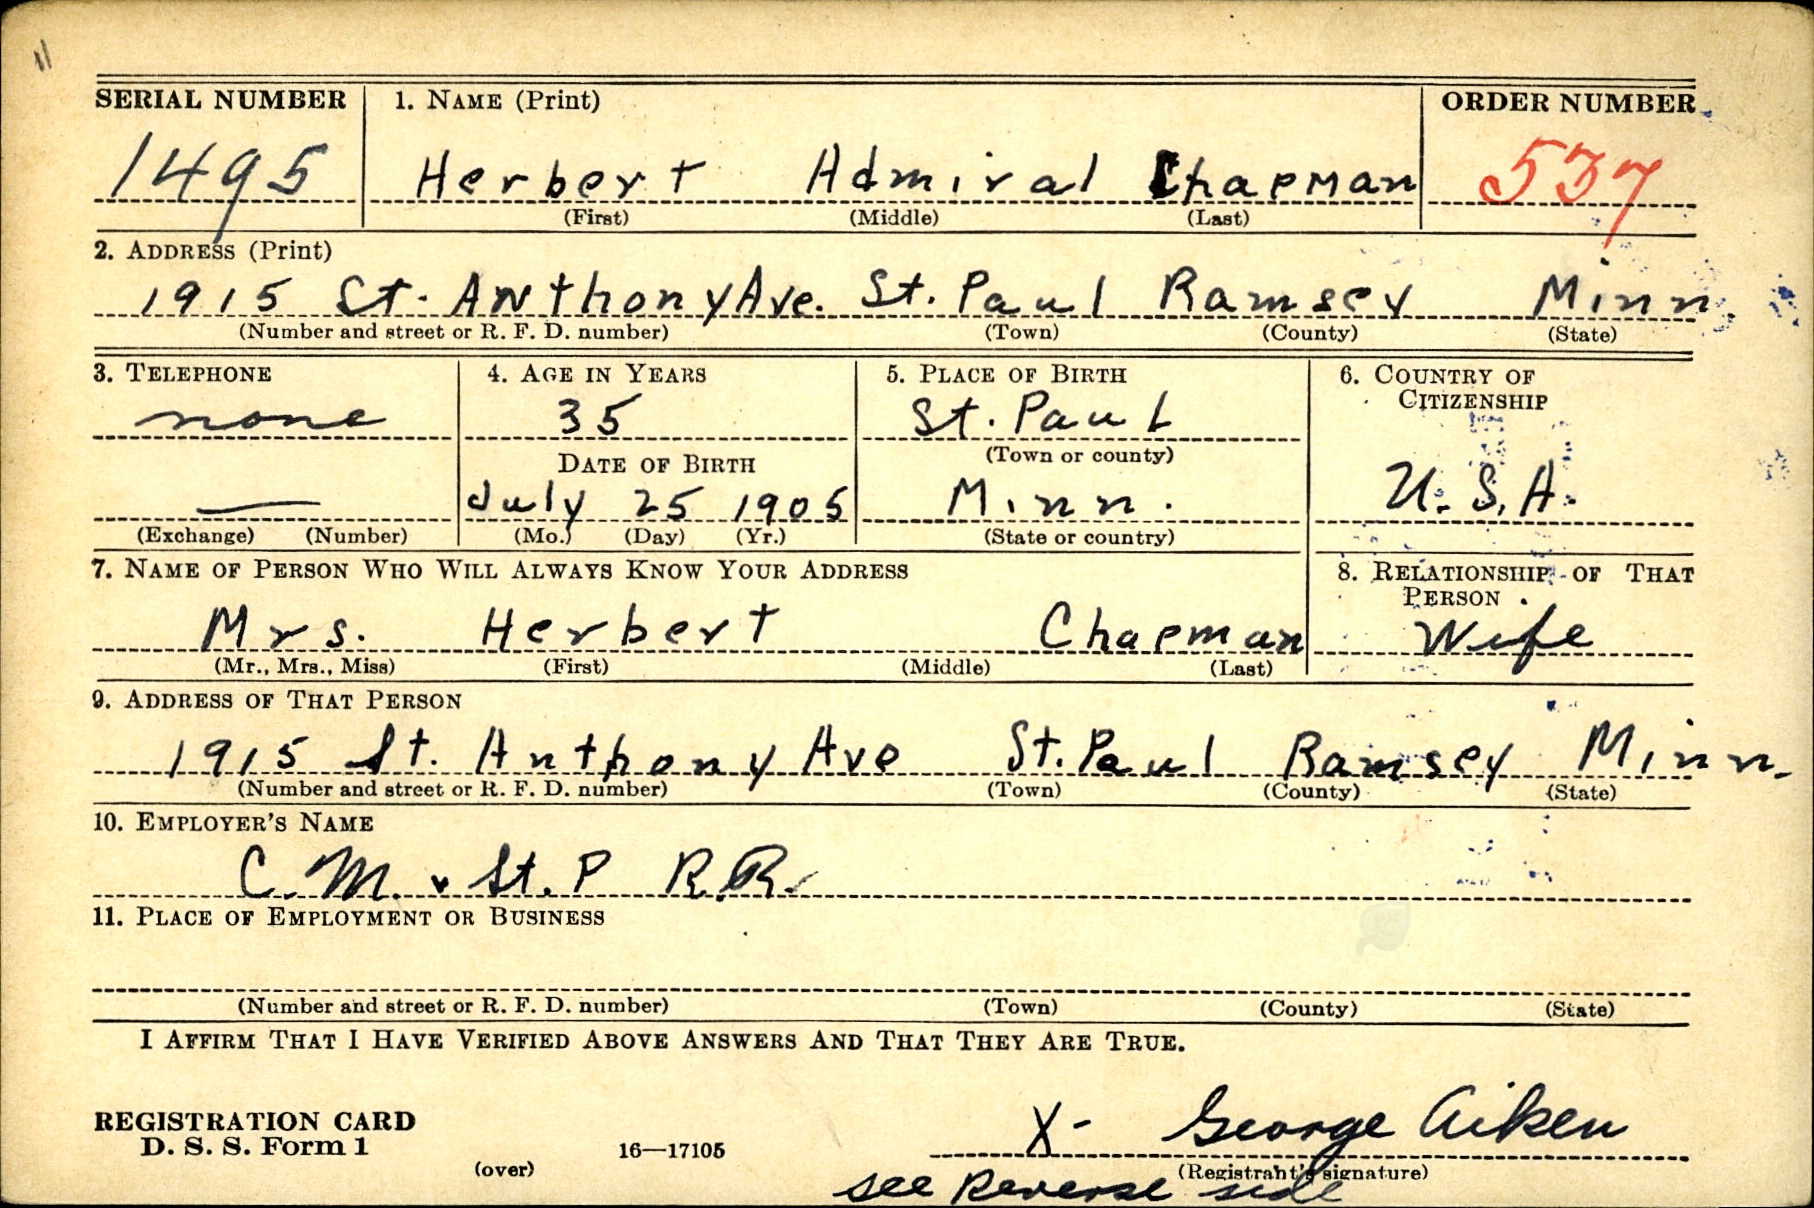 11
SERIAL NUMBER 1. NAME (Print) ORDER NUMBER
1495 Herbert Admiral Chapman 537
(First) (Middle) (Last)
2. ADDRESS (Print)
1915 St. Anthony Ave. St. Paul Ramsey Minn.
(Number and street or R. F. D. number) (Town) (County) (State)
3. TELEPHONE 4. AGE IN YEARS 5. PLACE OF BIRTH 6. COUNTRY OF
CITIZENSHIP
none 35 St. Paul
DATE OF BIRTH (Town or county)
— July 25 1905 Minn. U.S.A.
(Exchange) (Number) (Mo.) (Day) (Yr.) (State or country)
7. NAME OF PERSON WHO WILL ALWAYS KNOW YOUR ADDRESS 8. RELATIONSHIP OF THAT
PERSON
Mrs. Herbert Chapman Wife
(Mr., Mrs., Miss) (First) (Middle) (Last)
9. ADDRESS OF THAT PERSON
1915 St. Anthony Ave St. Paul Ramsey Minn.
(Number and street or R. F. D. number) (Town) (County) (State)
10. EMPLOYER'S NAME
C. M. & St. P R.R.
11. PLACE OF EMPLOYMENT OR BUSINESS
(Number and street or R. F. D. number) (Town) (County) (State)
I AFFIRM THAT I HAVE VERIFIED ABOVE ANSWERS AND THAT THEY ARE TRUE.
REGISTRATION CARD
D. S. S. Form 1 16—17105 X- George Aiken
(over) (Registrant's signature)
see Reverse side